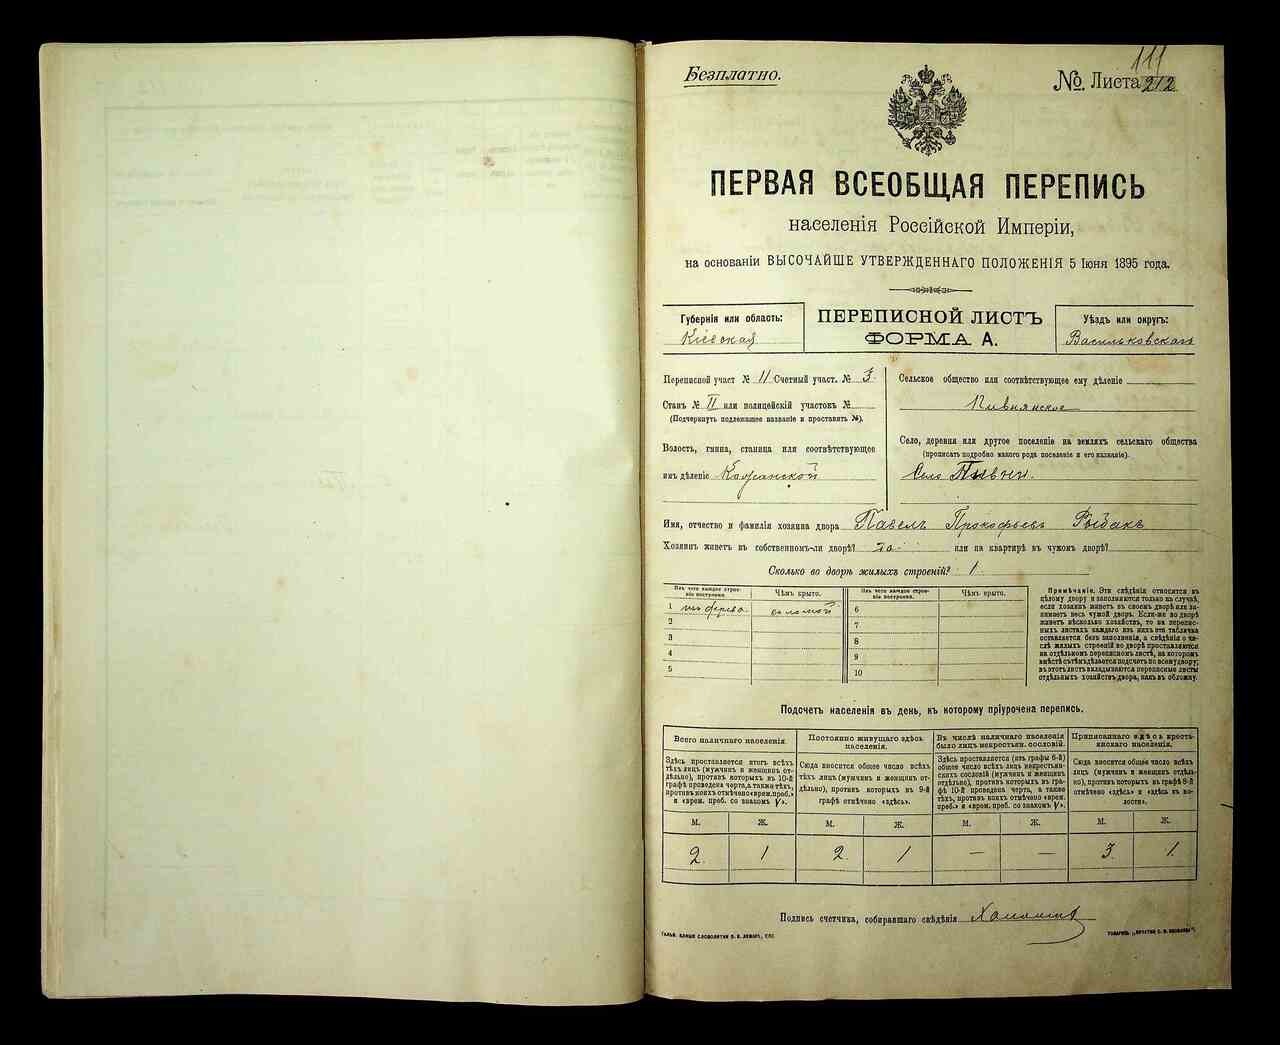 Безплатно.
111
№ Листа 212
ПЕРВАЯ ВСЕОБЩАЯ ПЕРЕПИСЬ
населенія Россійской Имперіи,
на основаніи ВЫСОЧАЙШЕ УТВЕРЖДЕННАГО ПОЛОЖЕНІЯ 5 Іюня 1895 года.
Губернія или область:
Кіевская
ПЕРЕПИСНОЙ ЛИСТЪ
ФОРМА А.
Уѣздъ или округъ:
Васильковскаго
Переписной участ № 11 Счетный участ. № 3
Станъ № II или полицейскій участокъ №
(Подчеркнуть подлежащее названіе и проставить №).
Волость, гмина, станица или соотвѣтствующее
имъ дѣленіе Кожанской
Сельское общество или соотвѣтствующее ему дѣленіе
Пивнянское
Село, деревня или другое поселеніе на земляхъ сельскаго общества
(прописать подробно какого рода поселеніе и его названіе).
Село Пивни.
Имя, отчество и фамилія хозяина двора Павелъ Прокофьевъ Рыбакъ
Хозяинъ живетъ въ собственномъ-ли дворѣ? да. или на квартирѣ въ чужомъ дворѣ?
Сколько во дворѣ жилыхъ строеній? 1
Изъ чего каждое строеніе построено.
Чѣмъ крыто.
Изъ чего каждое строеніе построено.
Чѣмъ крыто.
1 изъ дерева. соломой
2
3
4
5
6
7
8
9
10
Примѣчаніе. Эти свѣдѣнія относятся къ
цѣлому двору и заполняются только въ случаѣ,
если хозяинъ живетъ въ своемъ дворѣ или занимаетъ
весь чужой дворъ. Если-же во дворѣ
живетъ нѣсколько хозяйствъ, то на переписныхъ
листахъ каждаго изъ нихъ эта табличка
оставляется безъ заполненія, а свѣдѣнія о числѣ
жилыхъ строеній во дворѣ проставляются
на отдѣльномъ переписномъ листѣ, на которомъ
вмѣстѣ съ тѣмъ дѣлается подсчетъ по всему двору;
въ этотъ листъ вкладываются переписные листы
отдѣльныхъ хозяйствъ двора, какъ въ обложку.
Подсчетъ населенія въ день, къ которому пріурочена перепись.
Всего наличнаго населенія.
Здѣсь проставляется итогъ всѣхъ
тѣхъ лицъ (мужчинъ и женщинъ отдѣльно),
противъ которыхъ въ 10-й
графѣ проведена черта, а также тѣхъ,
противъ коихъ отмѣчено «врем. преб.»
и «врем. преб. со знакомъ V».
Постоянно живущаго здѣсь
населенія.
Сюда вносится общее число всѣхъ
тѣхъ лицъ (мужчинъ и женщинъ отдѣльно),
противъ которыхъ въ 9-й
графѣ отмѣчено «здѣсь».
Въ числѣ наличнаго населенія
было лицъ некрестьян. сословій.
Здѣсь проставляется (изъ графы 6-й)
общее число всѣхъ лицъ некрестьянскихъ
сословій (мужчинъ и женщинъ
отдѣльно), противъ которыхъ въ графѣ
10-й проведена черта, а также
тѣхъ, противъ коихъ отмѣчено «врем.
преб.» и «врем. преб. со знакомъ V».
Приписаннаго здѣсь крестьянскаго
населенія.
Сюда вносится общее число всѣхъ
лицъ (мужчинъ и женщинъ отдѣльно),
противъ которыхъ въ графѣ 8-й
отмѣчено «здѣсь» и «здѣсь въ волости».
М. Ж. М. Ж. М. Ж. М. Ж.
2. 1 2. 1 — — 3. 1.
Подпись счетчика, собиравшаго свѣдѣнія